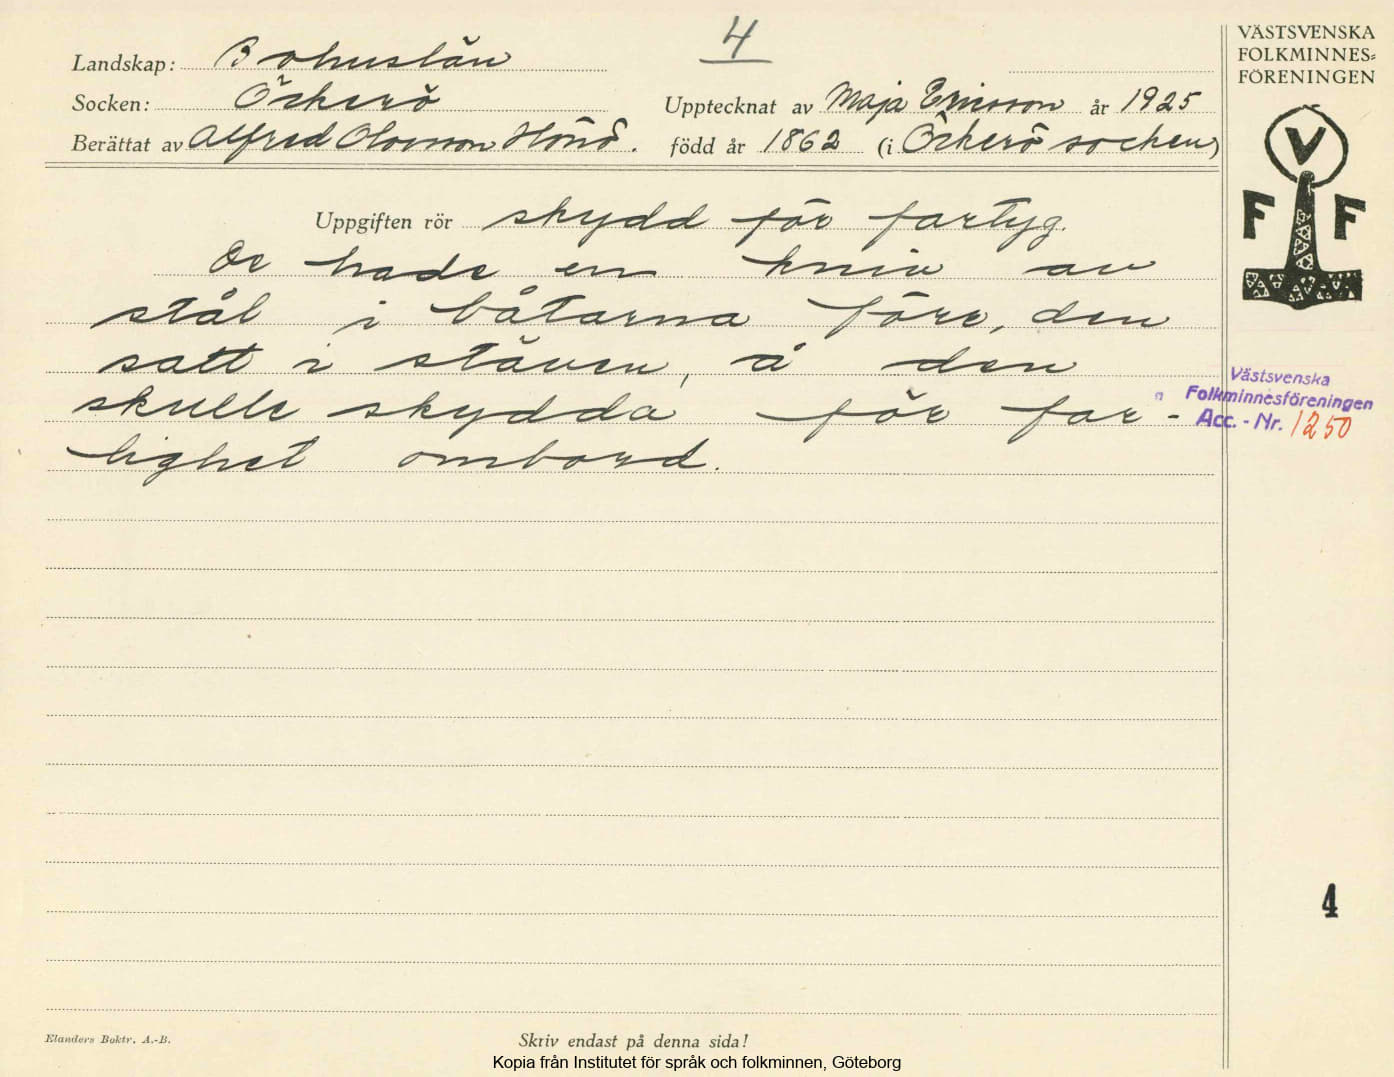 4
Landskap: Bohuslän
Socken: Öckerö
Upptecknat av Maja Ericsson år 1925
Berättat av Alfred Olovsson Hönö. född år 1862 (i Öckerö socken)
Uppgiften rör skydd för fartyg.
De hade en kniv av
stål i båtarna förr, den
satt i stäven, å den
skulle skydda för far-
lighet ombord.
VÄSTSVENSKA
FOLKMINNES=
FÖRENINGEN
V
F F
Västsvenska
Folkminnesföreningen
Acc. - Nr. 1250
4
Elanders Boktr. A.-B.
Skriv endast på denna sida!
Kopia från Institutet för språk och folkminnen, Göteborg